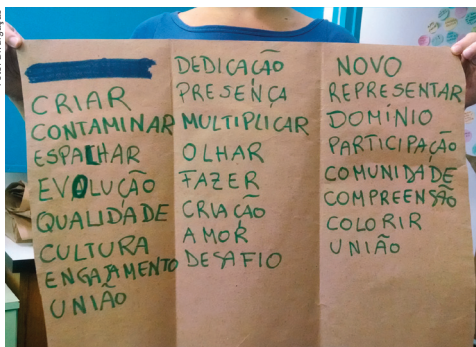 CRIAR
CONTAMINAR
ESPALHAR
EVOLUÇÃO
QUALIDADE
CULTURA
ENGAJAMENTO
UNIÃO
DEDICAÇÃO
PRESENÇA
MULTIPLICAR
OLHAR
FAZER
CRIAÇÃO
AMOR
DESAFIO
NOVO
REPRESENTAR
DOMÍNIO
PARTICIPAÇÃO
COMUNIDADE
COMPREENSÃO
COLORIR
UNIÃO